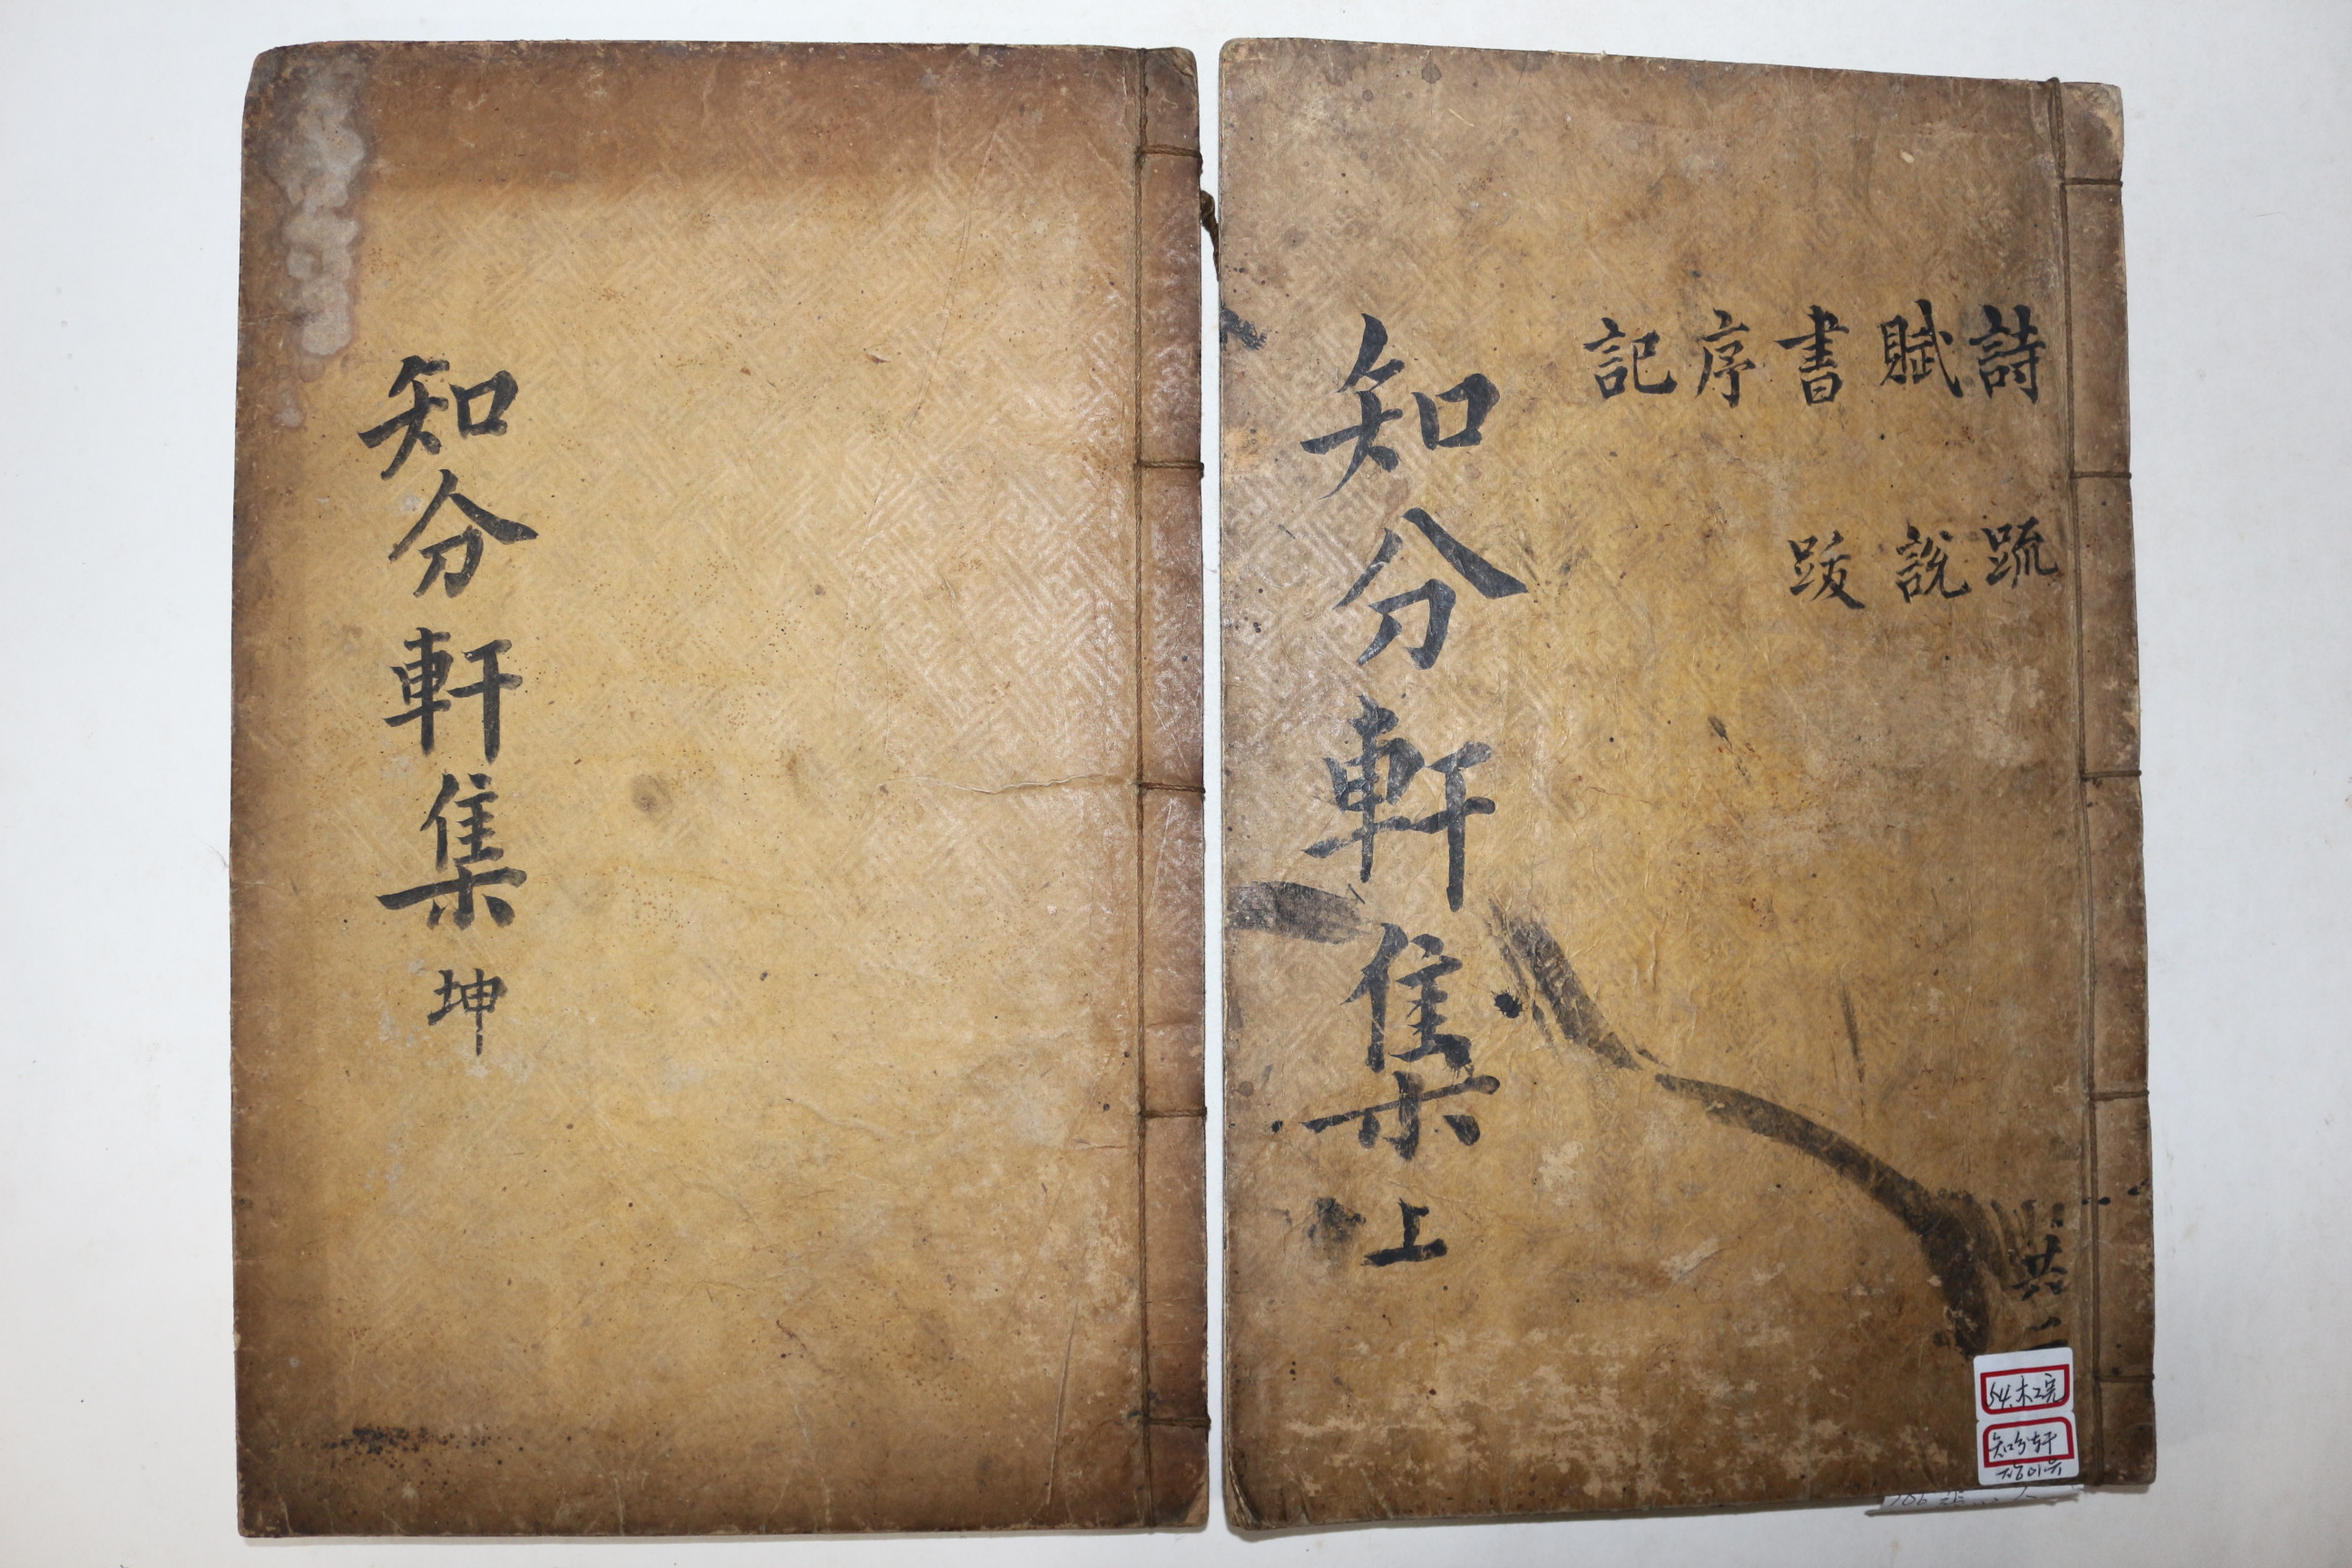 詩 賦 書 序 記
䟽 說 跋
知分軒集 上
共二
54.木2完
知分軒
知分軒集 坤